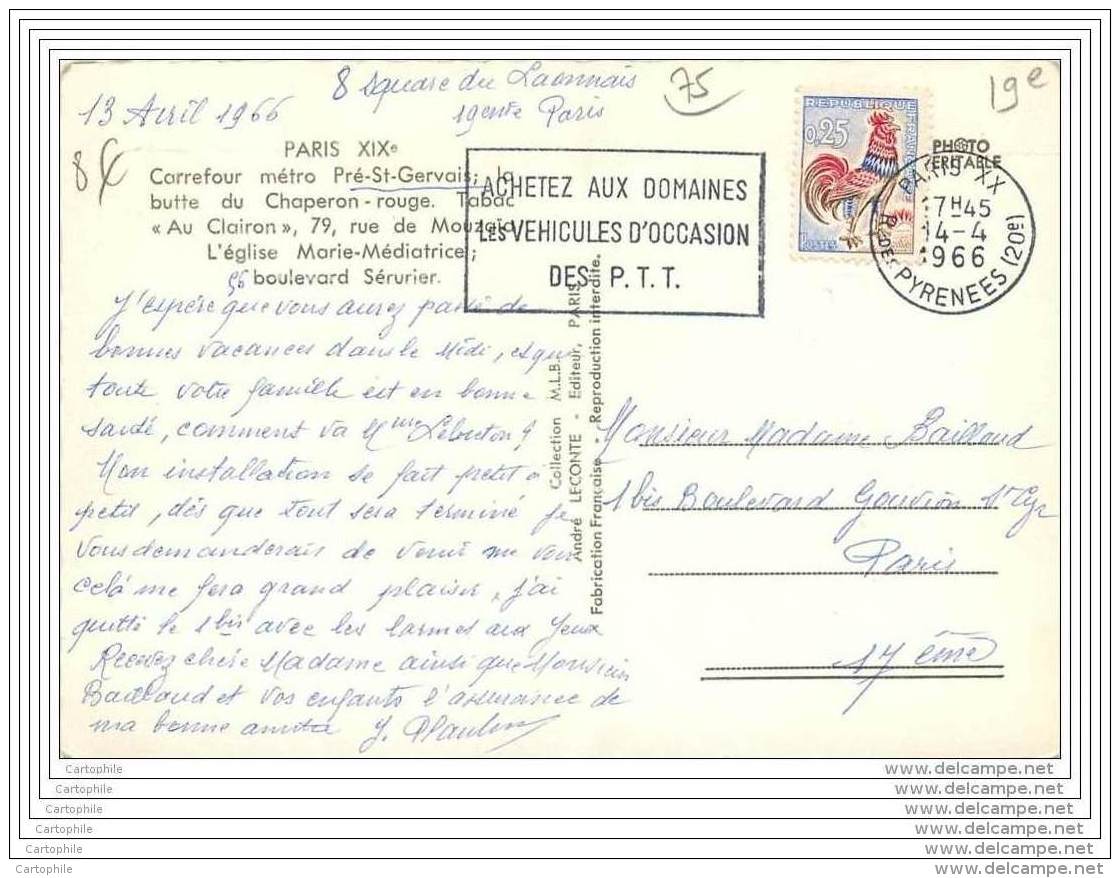 13 Avril 1966
8 Square du Laonnais
19eme Paris
75
19e
8€
PARIS XIXe
Carrefour métro Pré-St-Gervais; la
butte du Chaperon-rouge. Tabac
« Au Clairon », 79, rue de Mouzaïa
L'église Marie-Médiatrice;
boulevard Sérurier.
ACHETEZ AUX DOMAINES
LES VEHICULES D'OCCASION
DES P.T.T.
REPUBLIQUE FRANCAISE
0,25
POSTES
PHOTO
VERITABLE
PARIS XX
17H45
14-4
1966
R. DES PYRENEES (20e)
J'espère que vous aurez passé de
bonnes vacances dans le Midi, et que
toute votre famille est en bonne
santé, comment va Mme Lebreton?
Mon installation se fait petit à
petit, dès que tout sera terminé je
vous demanderais de venir me voir
celà me fera grand plaisir, j'ai
quitté le 1bis avec les larmes aux yeux
Recevez chère Madame ainsi que Monsieur
Baillaud et vos enfants l'assurance de
ma bonne amitié
Collection M.L.B.
André LECONTE - Editeur, PARIS
Fabrication Française - Reproduction interdite.
Monsieur Madame Baillaud
1bis Boulevard Gouvion St Cyr
Paris
17ème
Cartophile www.delcampe.net
Cartophile www.delcampe.net
Cartophile www.delcampe.net
Cartophile www.delcampe.net
Cartophile www.delcampe.net
Cartophile www.delcampe.net